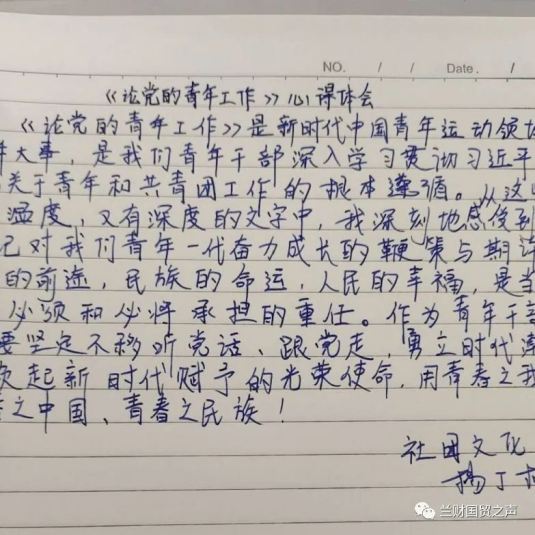 NO. / / Date. /
《论党的青年工作》心得体会
《论党的青年工作》是新时代中国青年运动领
大事，是我们青年干部深入学习贯彻习近平
关于青年和共青团工作的根本遵循。从这
温度，又有深度的文字中，我深刻地感
记对我们青年一代奋力成长的鞭策与期许
的前途，民族的命运，人民的幸福，是当
必须和必将承担的重任。作为青年干
要坚定不移听党话、跟党走，勇立时代
起新时代赋予的光荣使命，用青春之我
之中国、青春之民族！
社团文化
杨丁
兰财国贸之声